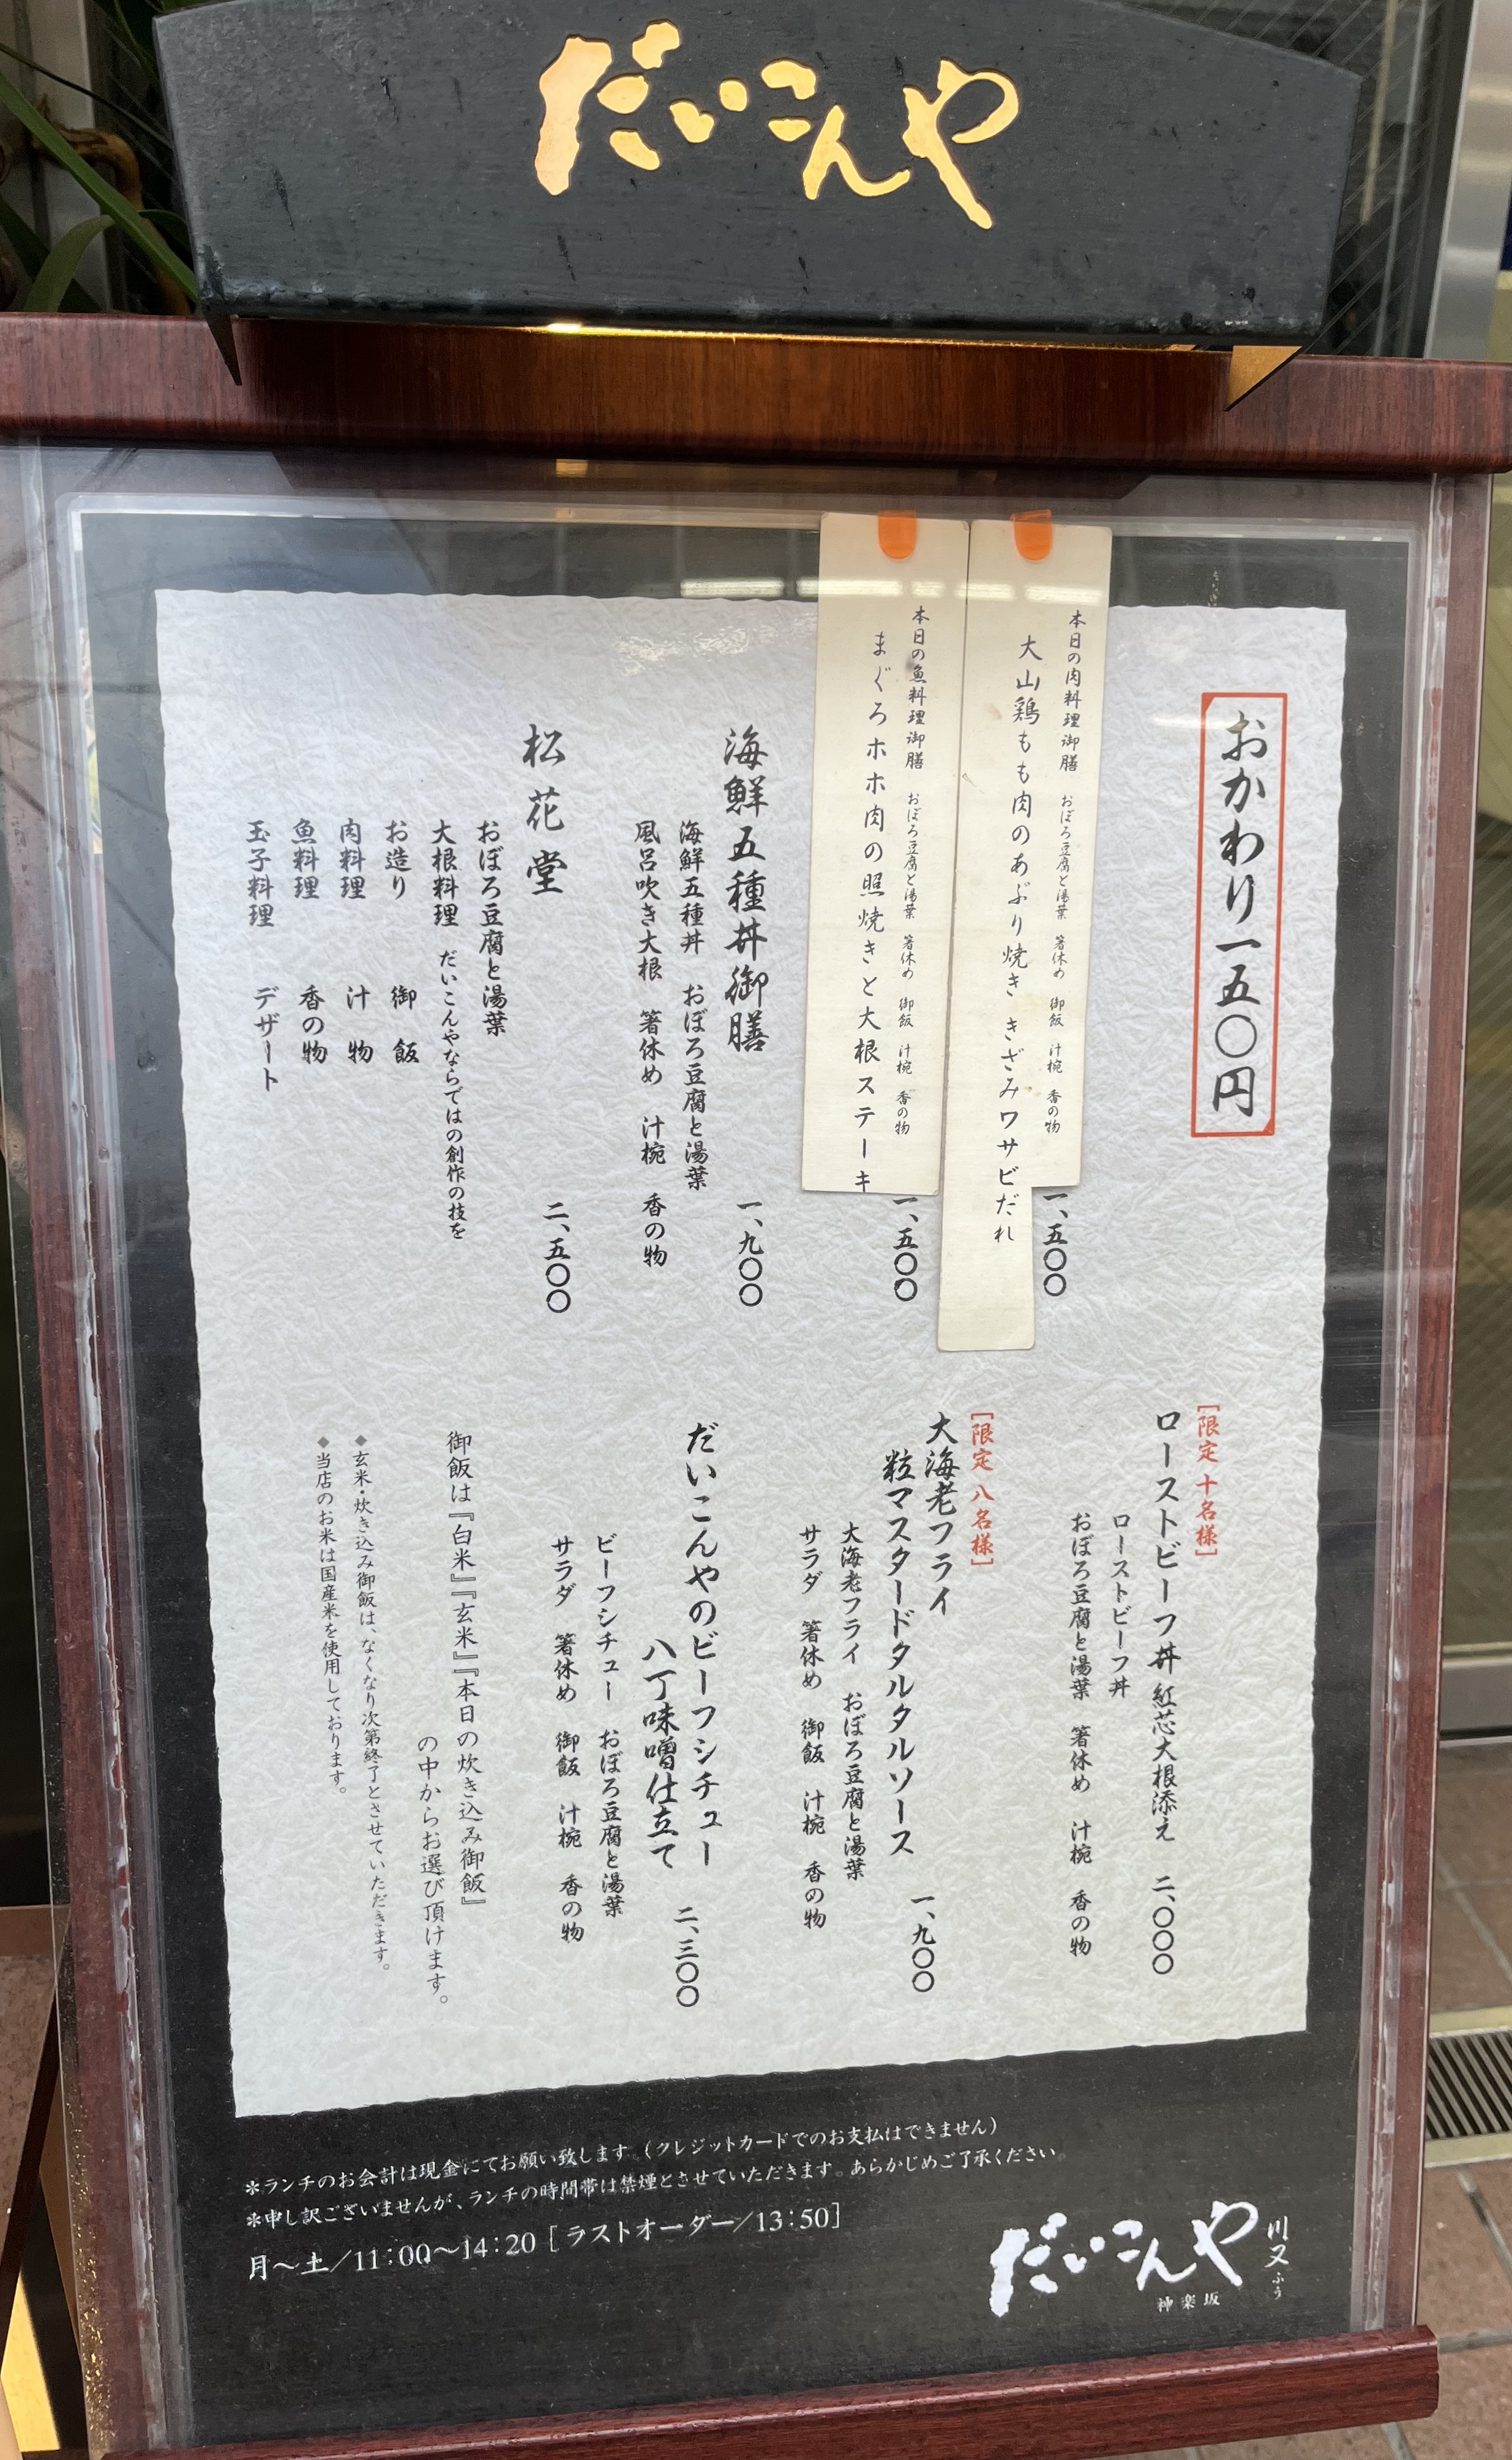 だいこんや
おかわり一五〇円
本日の肉料理御膳 おぼろ豆腐と湯葉 箸休め 御飯 汁椀 香の物
大山鶏もも肉のあぶり焼き きざみワサビだれ
一、五〇〇
本日の魚料理御膳 おぼろ豆腐と湯葉 箸休め 御飯 汁椀 香の物
まぐろホホ肉の照焼きと大根ステーキ
一、五〇〇
海鮮五種丼御膳 一、九〇〇
海鮮五種丼 おぼろ豆腐と湯葉
風呂吹き大根 箸休め 汁椀 香の物
松花堂 二、五〇〇
おぼろ豆腐と湯葉
大根料理 だいこんやならではの創作の技を
お造り 御飯
肉料理 汁物
魚料理 香の物
玉子料理 デザート
[限定 十名様]
ローストビーフ丼 紅芯大根添え 二、〇〇〇
ローストビーフ丼
おぼろ豆腐と湯葉 箸休め 汁椀 香の物
[限定 八名様]
大海老フライ
粒マスタードタルタルソース 一、九〇〇
大海老フライ おぼろ豆腐と湯葉
サラダ 箸休め 御飯 汁椀 香の物
だいこんやのビーフシチュー
八丁味噌仕立て 二、三〇〇
ビーフシチュー おぼろ豆腐と湯葉
サラダ 箸休め 御飯 汁椀 香の物
御飯は『白米』『玄米』『本日の炊き込み御飯』
の中からお選び頂けます。
◆玄米・炊き込み御飯は、なくなり次第終了とさせていただきます。
◆当店のお米は国産米を使用しております。
＊ランチのお会計は現金にてお願い致します。(クレジットカードでのお支払はできません)
＊申し訳ございませんが、ランチの時間帯は禁煙とさせていただきます。あらかじめご了承ください。
月〜土／11:00〜14:20 [ ラストオーダー／13:50]
だいこんや
川又
ふう
神楽坂